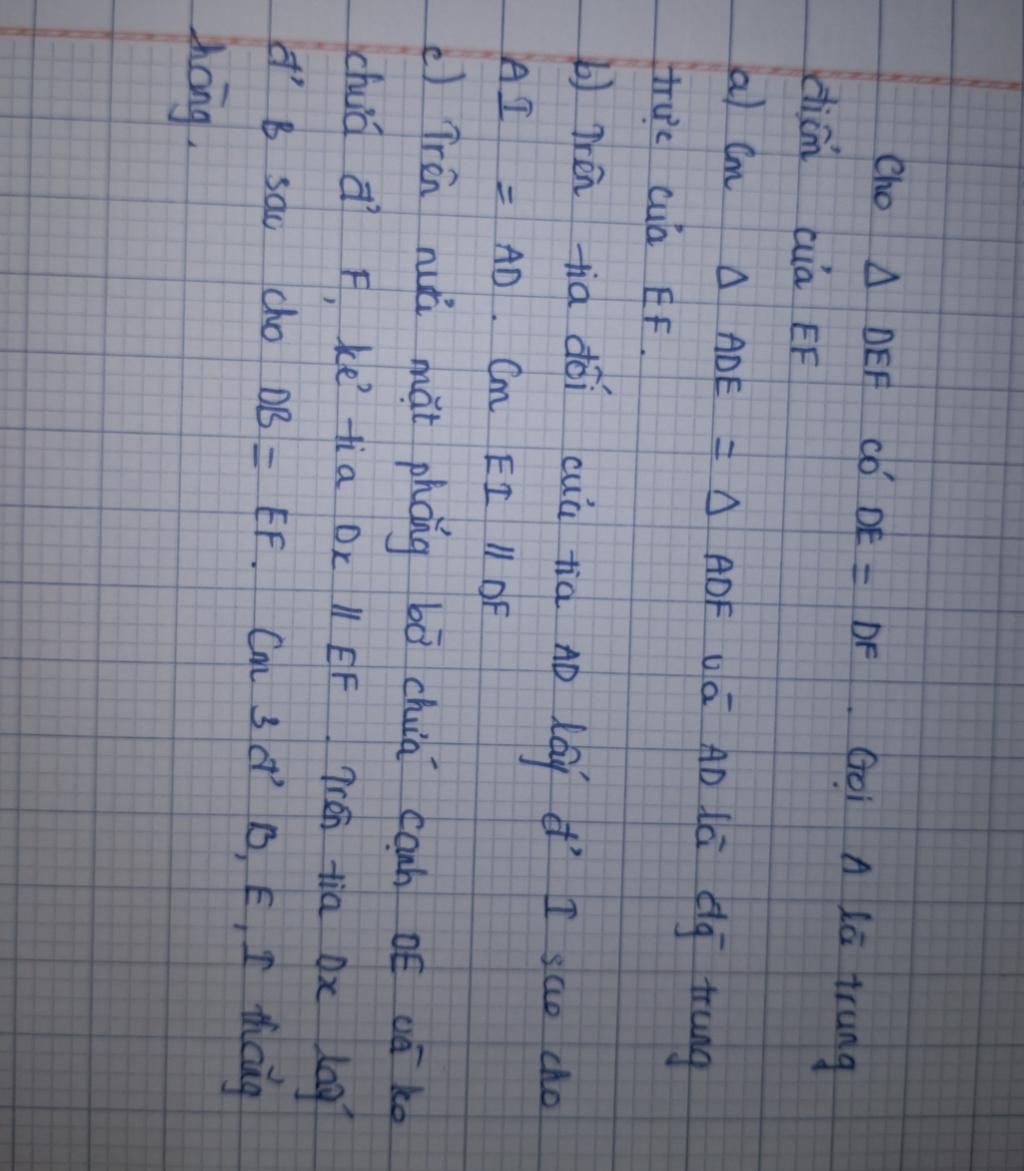 Cho Δ DEF có DE = DF. Gọi A là trung
điểm của EF
a) Cm Δ ADE = Δ ADF và AD là đg trung
trực của EF.
b) Trên tia đối của tia AD lấy đ' I sao cho
AI = AD. Cm EI // DF
c) Trên nửa mặt phẳng bờ chứa cạnh DE và ko
chứa đ' F, kẻ tia Dx // EF. Trên tia Dx lấy
đ' B sao cho DB = EF. Cm 3 đ' B, E, I thẳng
hàng.